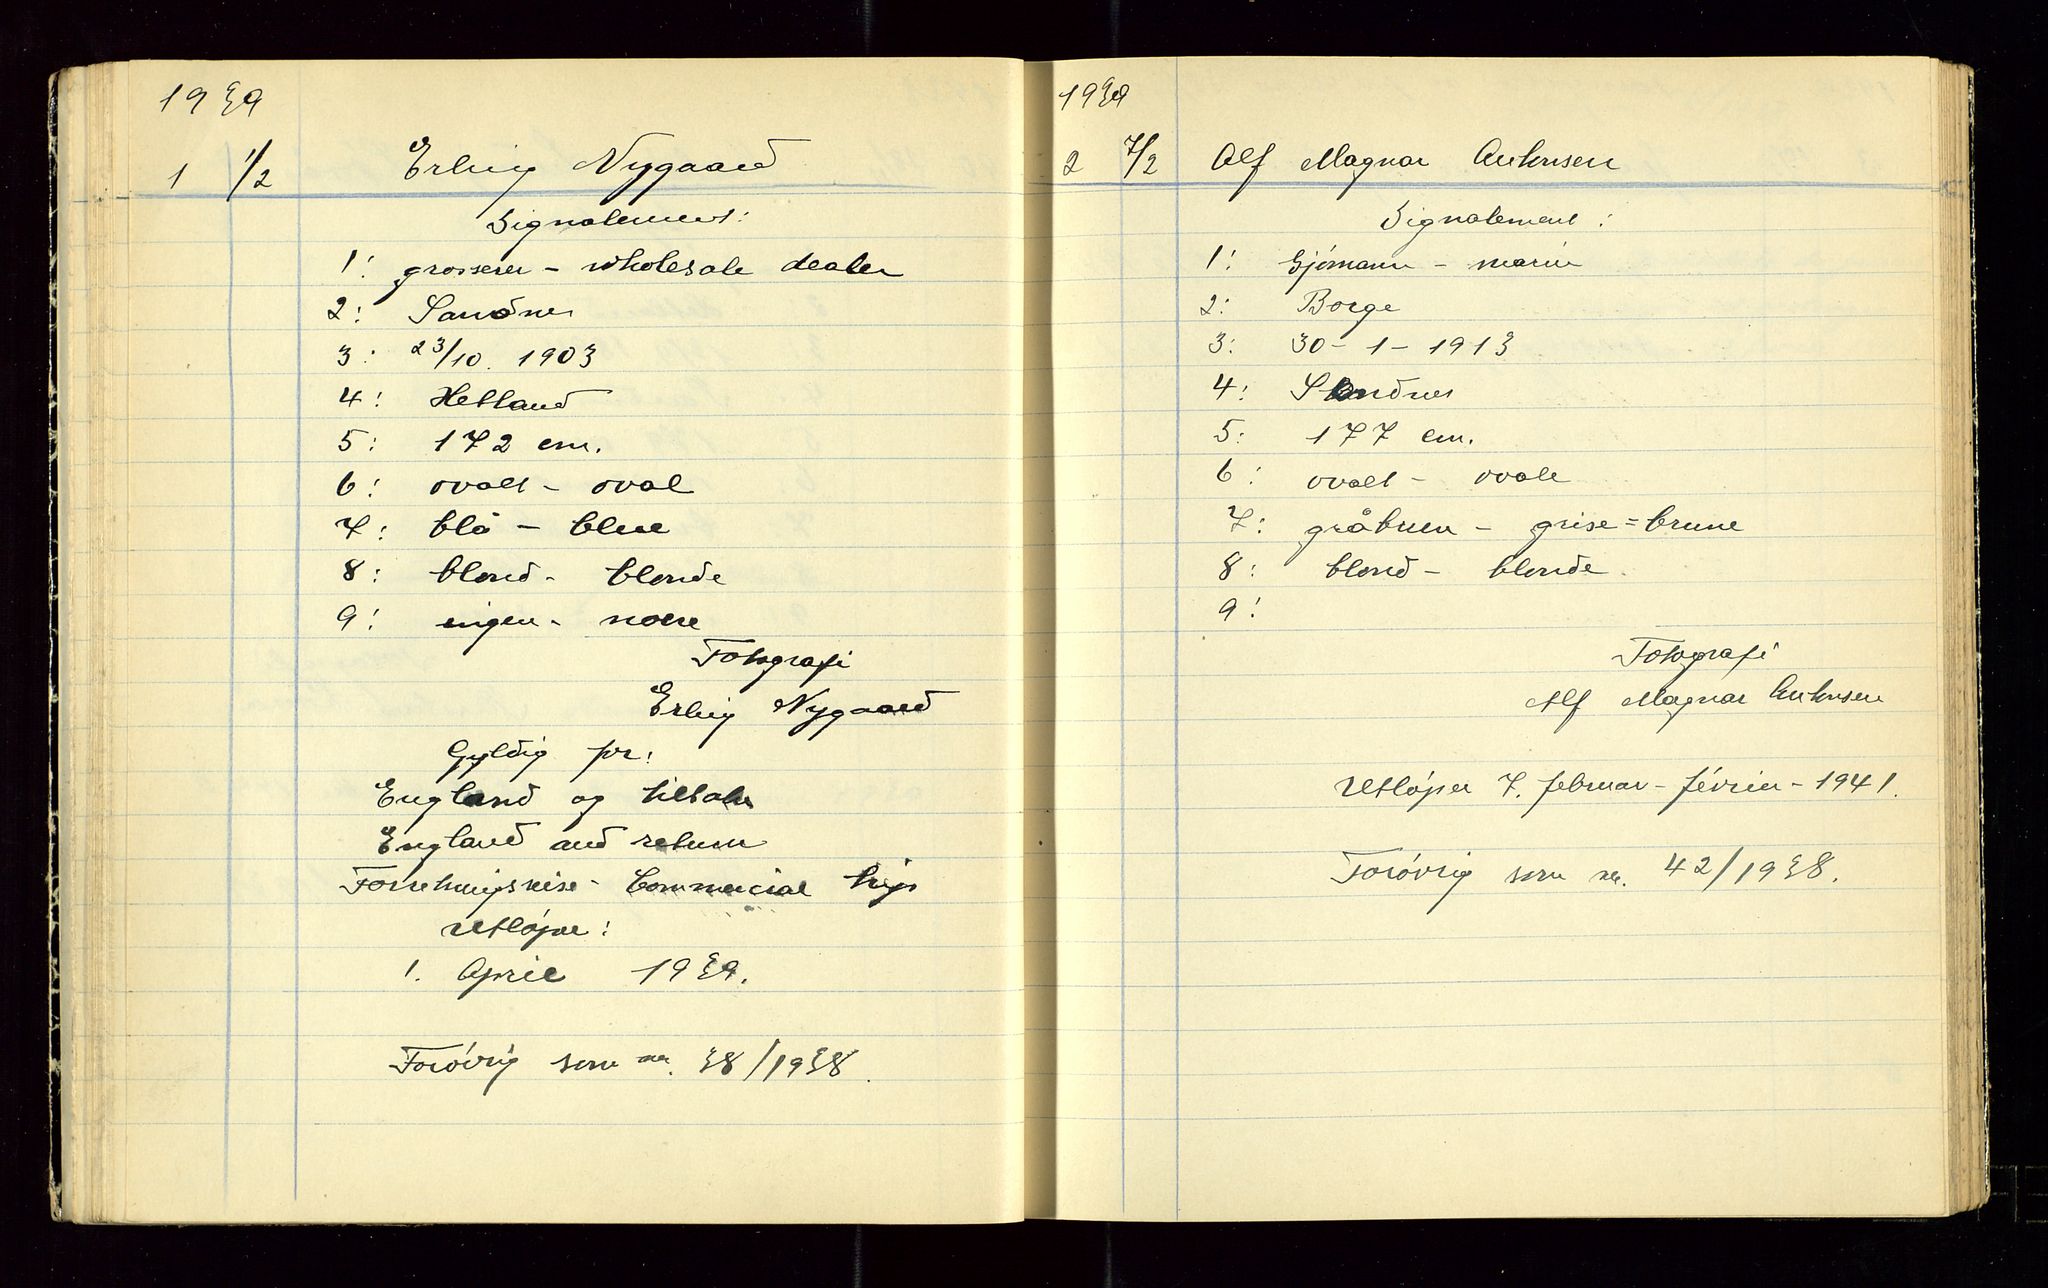 1939
1 1/2 Erling Nygaard
Signalement:
1: grosserer - wholesale dealer
2: Sandnes
3: 23/10. 1903
4: Hetland
5: 172 cm.
6: ovalt - oval
7: blå - blue
8: blond - blonde
9: ingen - none
Fotografi
Erling Nygaard
Gyldig for:
England og tilbake
England and return
Forretningsreise - Commercial trip
Utløper:
1. April 1939.
Forøvrig som nr. 38/1938.
1939
2 7/2 Alf Magnar Antonsen
Signalement:
1: Sjømann - marin
2: Borge
3: 30-1-1913
4: Sandnes
5: 177 cm.
6: ovalt - ovale
7: gråbrun - grise=brune
8: blond - blonde.
9:
Fotografi
Alf Magnar Antonsen
Utløper 7. februar - février - 1941.
Forøvrig som nr. 42/1938.